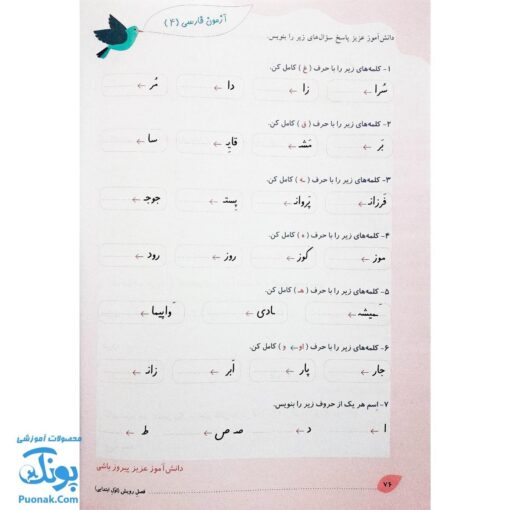 آزمون فارسی (۴)
دانش‌آموز عزیز پاسخ سؤال‌های زیر را بنویس.
۱- کلمه‌های زیر را با حرف ( غ ) کامل کن.
سُرا ← زا ← دا ← مُر ←
۲- کلمه‌های زیر را با حرف ( ق ) کامل کن.
بَر ← مَشـ ← قایِـ ← سا ←
۳- کلمه‌های زیر را با حرف ( ـه ) کامل کن.
فَرزانـ ← پَروانـ ← پِستـ ← جوجـ ←
۴- کلمه‌های زیر را با حرف ( ه ) کامل کن.
موز ← کوز ← روز ← رود ←
۵- کلمه‌های زیر را با حرف ( هـ ) کامل کن.
ـَمیشه ← ـادی ← ـَواپیما ←
۶- کلمه‌های زیر را با حرف ( او ← و ) کامل کن.
جار ← پار ← اَبر ← زانـ ←
۷- اسم هر یک از حروف زیر را بنویس.
ا ← د ← صـ ص ← ط ←
دانش‌آموز عزیز پیروز باشی
۷۶
فصل رویش (اوّل ابتدایی)
محصولات آموزشی
پونک
Puonak.Com